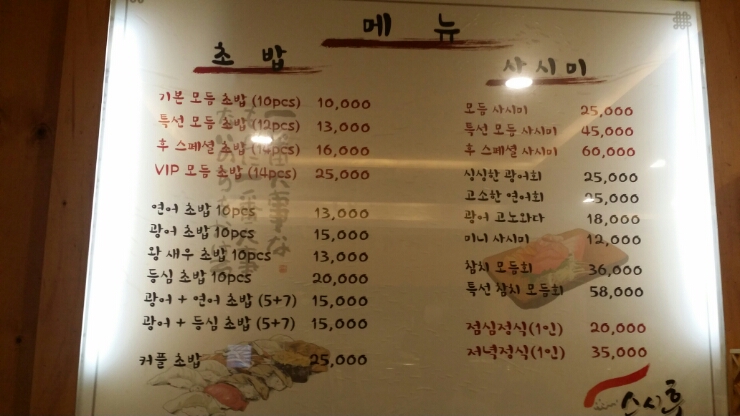 메뉴
초밥
기본 모듬 초밥 (10pcs) 10,000
특선 모듬 초밥 (12pcs) 13,000
후 스페셜 초밥 (14pcs) 16,000
VIP 모듬 초밥 (14pcs) 25,000
연어 초밥 10pcs 13,000
광어 초밥 10pcs 15,000
왕 새우 초밥 10pcs 13,000
등심 초밥 10pcs 20,000
광어 + 연어 초밥 (5+7) 15,000
광어 + 등심 초밥 (5+7) 15,000
커플 초밥 25,000
사시미
모듬 사시미 25,000
특선 모듬 사시미 45,000
후 스페셜 사시미 60,000
싱싱한 광어회 25,000
고소한 연어회 25,000
광어 고노와다 18,000
미니 사시미 12,000
참치 모둠회 36,000
특선 참치 모둠회 58,000
점심정식(1인) 20,000
저녁정식(1인) 35,000
스시후